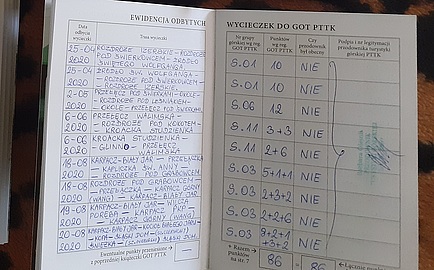 EWIDENCJA ODBYTYCH
Data odbycia wycieczki
Trasa wycieczki
25-04 2020
ROZDROŻE IZERSKIE - ROZDROŻE
POD ŚWIERKOWCEM - ŹRÓDŁO
ŚWIĘTEGO WOLFGANGA
25-04 2020
ŹRÓDŁO ŚW. WOLFGANGA -
- ROZDROŻE POD ŚWIERKOWCEM -
- ROZDROŻE IZERSKIE
2-05 2020
PRZEŁĘCZ POD
OKOLE - PRZEŁĘCZ POD
6-06 2020
PRZEŁĘCZ WALIMSKA -
- ROZDROŻE POD KOKOTEM -
- KROACKA STUDZIENKA
6-06 2020
KROACKA STUDZIENKA -
- PRZEŁĘCZ
WALIMSKA
18-08 2020
KARPACZ-BIAŁY JAR - PRZEŁĄCZKA
- KAPLICZKA ŚW. ANNY -
- ROZDROŻE POD GRABOWCEM
18-08 2020
ROZDROŻE POD GRABOWCEM -
- PRZEŁĄCZKA - KARPACZ GÓRNY
(WANG) - KARPACZ-BIAŁY JAR
19-08 2020
KARPACZ-BIAŁY JAR - WILCZA
PORĘBA - KARPACZ
- KARPACZ GÓRNY (WANG)
20-08 2020
KARPACZ-BIAŁY JAR -
- KOPA - ŚLĄSKI DOM -
ŚNIEŻKA - ŚLĄSKI DOM
Ewentualne punkty przeniesione
z poprzedniej książeczki GOT PTTK
WYCIECZEK DO GOT PTTK
Nr grupy górskiej wg reg. GOT PTTK
Punktów wg reg. GOT PTTK
Czy przodownik był obecny
Podpis i nr legitymacji przodownika turystyki górskiej PTTK
S.01 10 NIE
S.01 10 NIE
S.06 12 NIE
S.11 3+3 NIE
S.11 2+6 NIE
S.03 5+1+1 NIE
S.03 2+3+2 NIE
S.03 2+2+6 NIE
S.03 9+2+1+3+2 NIE
Razem punktów na str. 7
86 = 86
Łącznie